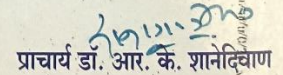 प्राचार्य डॉ. आर. के. शानेदिवाण